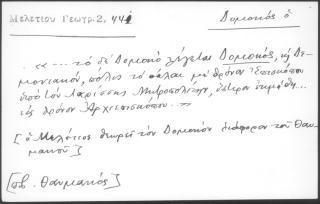 Μελετίου Γεωγρ. 2, 441
Δομοκός ὁ
«---τό δέ Δομοκό λέγεται Δομοκός, ἤ Δε-
μονιακόν, πόλις τό πάλαι μέ θρόνον Ἐπισκόπου
ὑπό τόν Λαρίσσης Μητροπολίτην, ὕστερον ἐτιμήθη...
εἰς θρόνον Ἀρχιεπισκόπου...»
[ὁ Μελέτιος θεωρεῖ τόν Δομοκόν διάφορον τοῦ Θαυ-
μακοῦ]
[πβ. Θαυμακός]